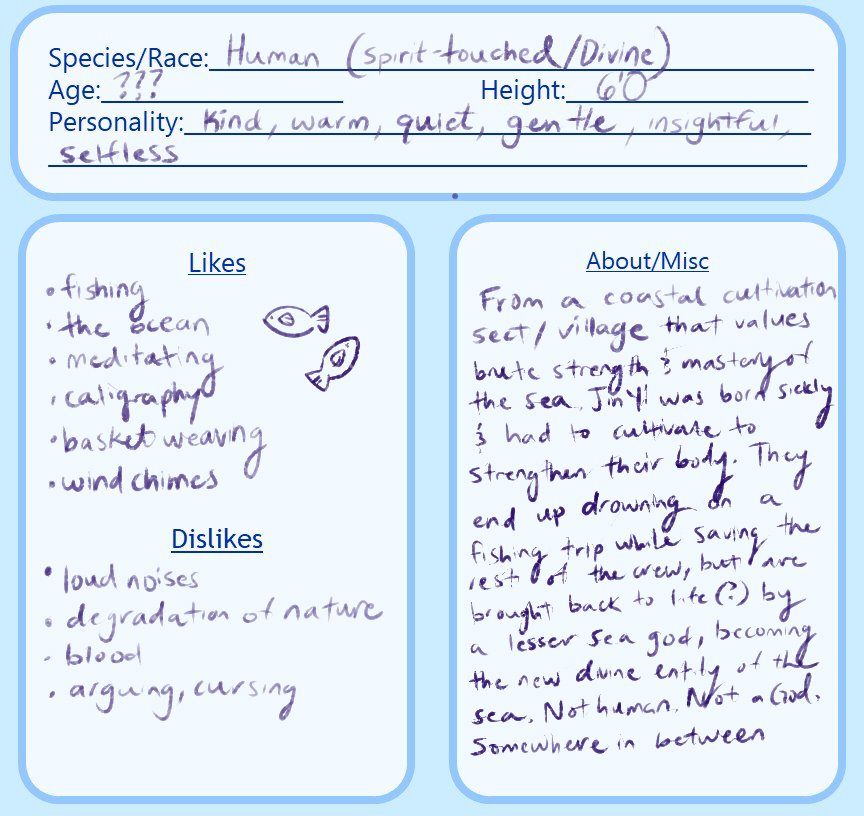 Species/Race: Human (spirit-touched/Divine)
Age: ??? Height: 6'0
Personality: Kind, warm, quiet, gentle, insightful,
selfless
Likes
• fishing
• the ocean
• meditating
• caligraphy
• basket weaving
• wind chimes
Dislikes
• loud noises
• degradation of nature
• blood
• arguing, cursing
About/Misc
From a coastal cultivation
sect/village that values
brute strength & mastery of
the sea. Jin Yi was born sickly
& had to cultivate to
strengthen their body. They
end up drowning on a
fishing trip while saving the
rest of the crew, but are
brought back to life (?) by
a lesser sea god, becoming
the new divine entity of the
sea. Not human. Not a God.
Somewhere in between